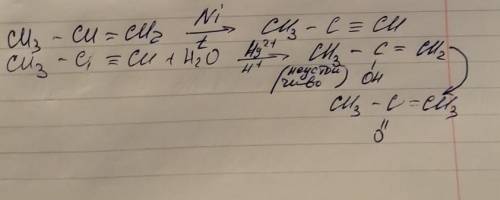 CH₃ - CH = CH₂ Ni t CH₃ - C ≡ CH
CH₃ - C ≡ CH + H₂O Hg²⁺ H⁺ CH₃ - C = CH₂
(неустойчиво) OH
CH₃ - C = CH₃
O